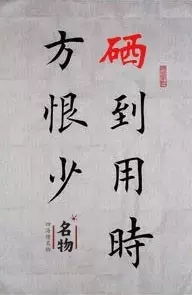 硒到用時
方恨少
名物